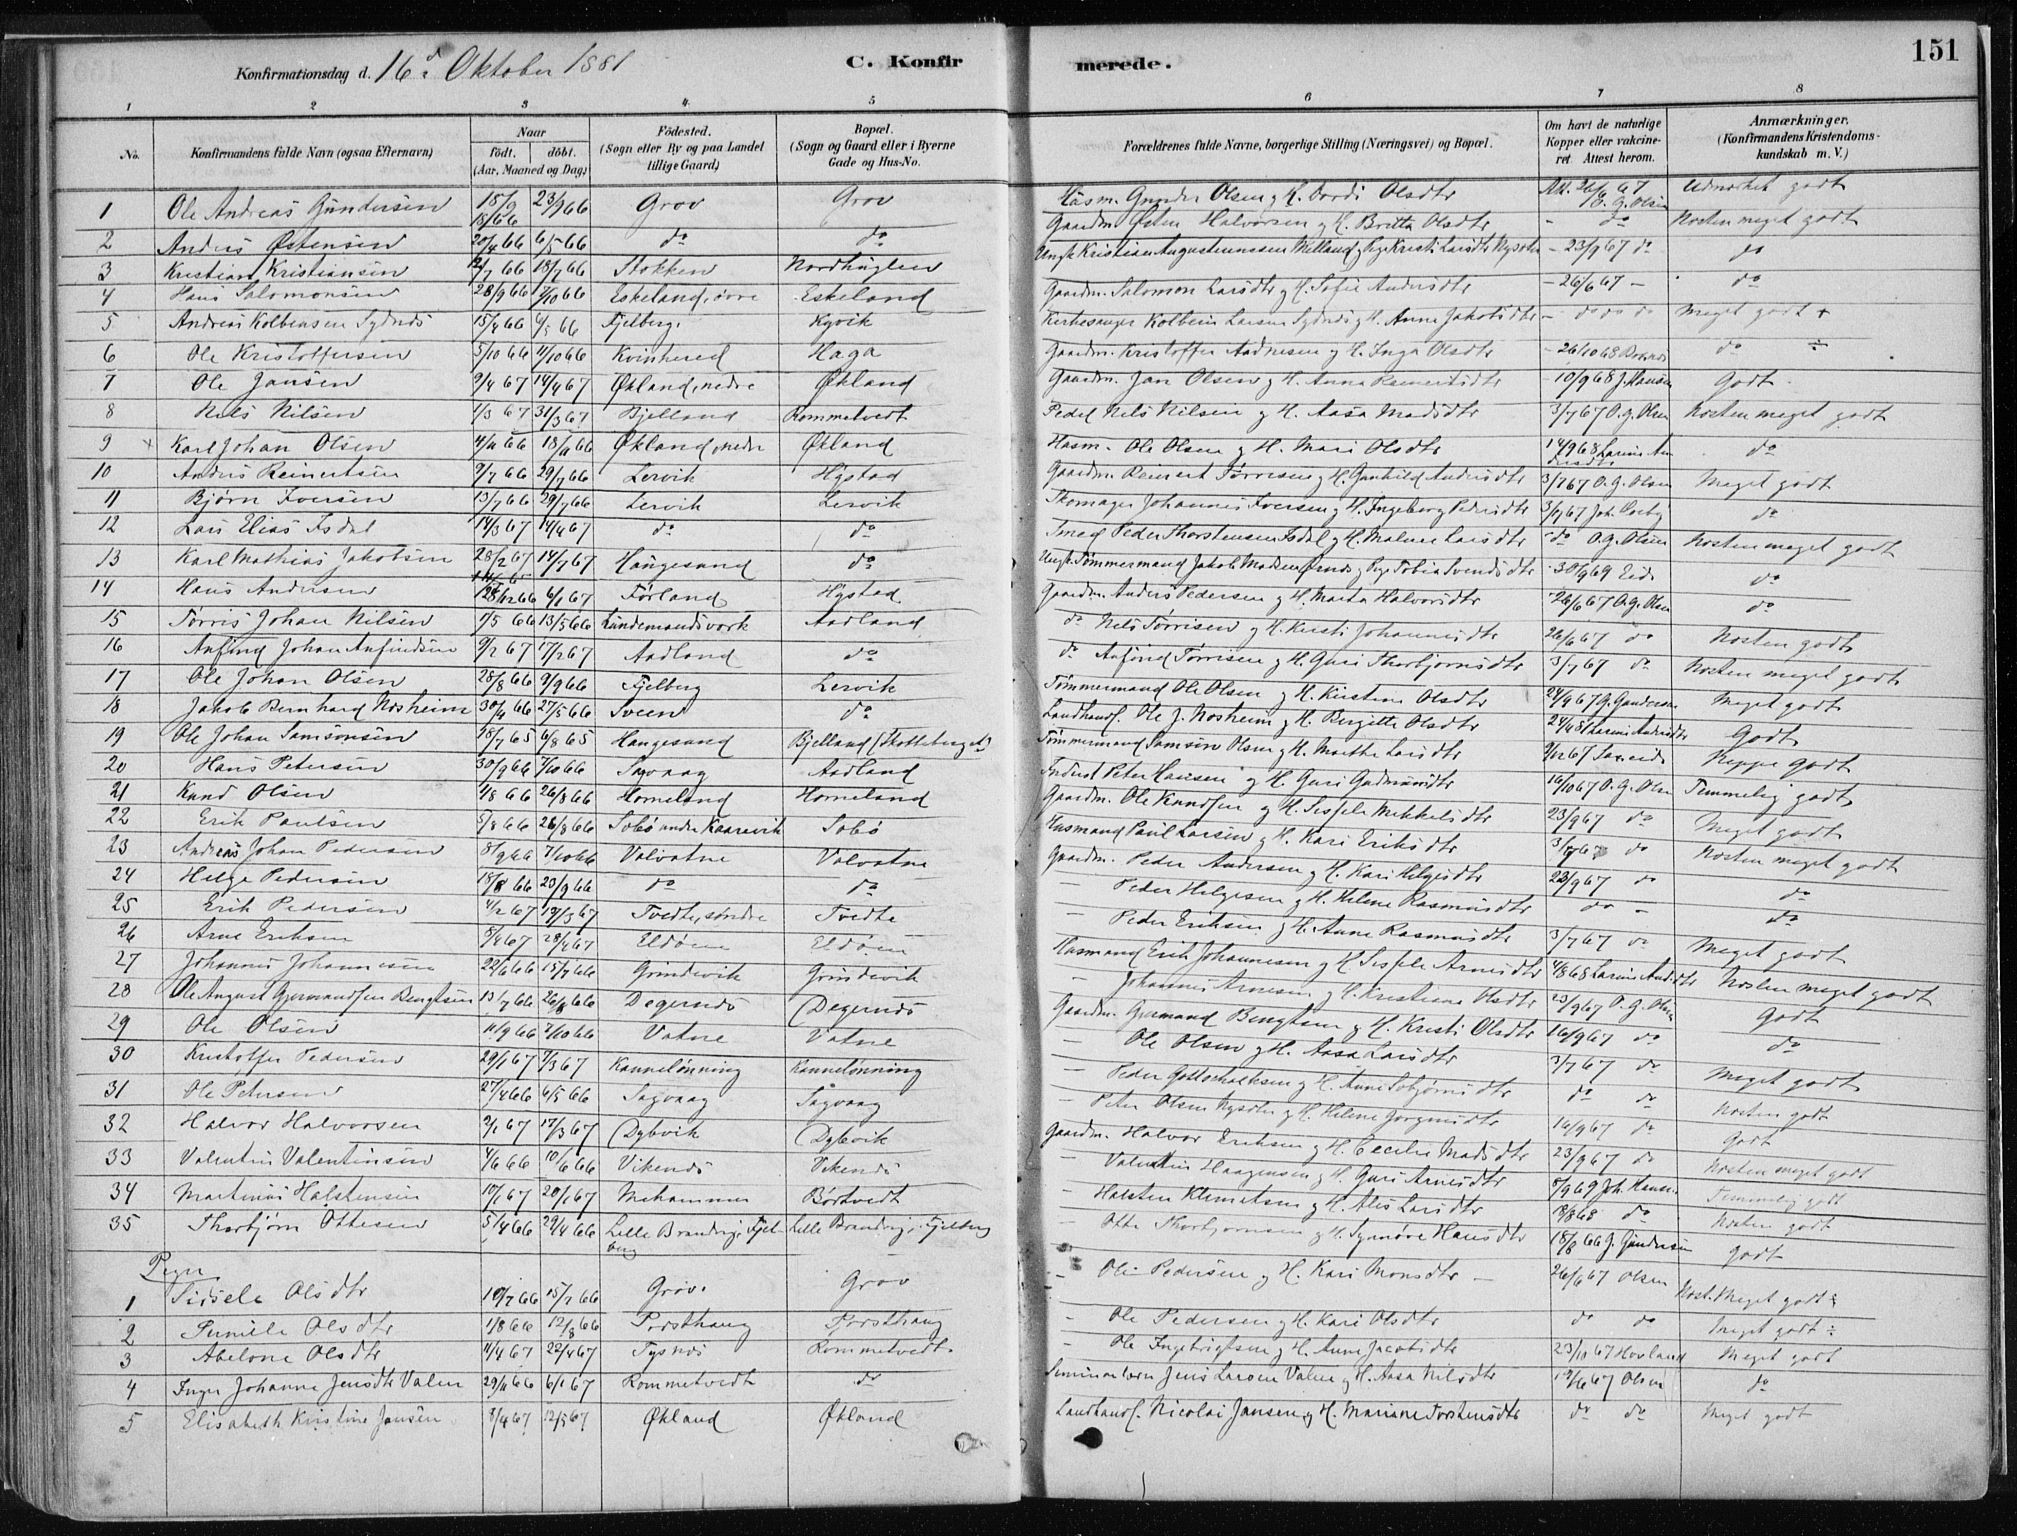 Konfirmationsdag d. 16d. Oktober 1881 C. Konfirmerede. 151
1 2 3 4 5 6 7 8
No. Konfirmandens fulde Navn (ogsaa Efternavn) Naar födt. döbt. (Aar, Maaned og Dag) Födested. (Sogn eller By og paa Landet tillige Gaard) Bopæl. (Sogn og Gaard eller i Byerne Gade og Hus-No. Forældrenes fulde Navne, borgerlige Stilling (Næringsvei) og Bopæl. Om havt de naturlige Kopper eller vakcineret Attest herom. Anmærkninger. (Konfirmandens Kristendomskundskab m. V.)
1 Ole Andreas Gundersen 18/9 66 23/9 66 Grov Grov Husm. Gunder Olsen og H. Dordi Olsdtr 26/6 67 O. G. Olsen Udmærket godt
2 Anders Østensen 20/4 66 6/5 66 do do Gaardm. Østen Halvorsen og H. Britta Olsdtr - do Næsten meget godt
3 Kristian Kristiansen 12/7 66 18/7 66 Stokken Nordhuglen Ungk Kristian Augustinussen Pige Kristi Larsdtr - 23/9 67 do do
4 Hans Salomonsen 28/9 66 7/10 66 Eskeland, øvre Eskeland Gaardm. Salomon Larsdtr og H. Sofie Andersdtr - 26/6 67 - do
5 Andreas Kolbensen Sydnæs 15/4 66 6/5 66 Fjelberg. Kyvik Kirkesanger Kolbein Larsen Sydnæs og H. Anne Jakobsdtr - do do do Meget godt +
6 Ole Kristoffersen 5/10 66 11/10 66 Kvinhered Haga Gaardm. Kristoffer Aadnesen og H. Inga Olsdtr - 26/10 68 do ÷
7 Ole Jansen 9/4 67 14/4 67 Økland, nedre Økland Gaardm. Jan Olsen og H. Anna Reinertsdtr - 10/9 68 J. Hansen Godt
8 Nils Nilsen 1/3 67 31/3 67 Bjelland Rommetvedt Pedel Nils Nilsen og H. Aasa Madsdtr 3/7 67 O. G. Olsen Næsten meget godt
9 Karl Johan Olsen 4/11 66 18/11 66 Økland, nedre Økland Husm. Ole Olsen og H. Mari Olsdtr 14/9 68 Larine Andersdtr do
10 Anders Reinertsen 9/7 66 29/7 66 Lervik Hystad Gaardm. Reinert Tørrisen og H. Gunhild Andersdtr 3/7 67 O. G. Olsen Meget godt
11 Bjørn Iversen 13/7 66 29/7 66 Lervik Lervik Skomager Johannes Iversen og H. Ingeborg Pedersdtr 3/7 67 Joh. do
12 Lars Elias Isdal 14/3 67 14/4 67 do do Smed Peder Thorstensen Isdal og H. Malene Larsdtr do O. G. Olsen Næsten meget godt
13 Karl Mathias Jakobsen 28/2 67 14/7 67 Haugesund do Ungk. Tømmermand Jakob Madsen og Pige Tobia Svendsdtr 30/9 69 Eide do
14 Hans Andersen 28/12 66 6/1 67 Førland Hystad Gaardm. Anders Pedersen og H. Marta Halvorsdtr 26/6 67 O. G. Olsen do
15 Tørris Johan Nilsen 1/5 66 13/5 66 Lundemandsværk Aadland do Nils Tørrisen og H. Kirsti Johannesdtr 26/6 67 do Næsten godt
16 Anfind Johan Anfindsen 9/2 67 17/2 67 Aadland do do Anfind Tørrisen og H. Guri Thorbjørnsdtr 3/7 67 do Næsten meget godt
17 Ole Johan Olsen 28/8 66 9/9 66 Fjelberg Lervik Tømmermand Ole Olsen og H. Kirstine Olsdtr 24/9 67 G. Gundersen Meget godt
18 Jakob Bernhard Nosheim 30/4 66 27/5 66 Sveen do Landhandl. Ole J. Nosheim og H. Bergitte Olsdtr 24/4 68 Larine Andersdtr Godt
19 Ole Johan Samsonsen 18/7 65 6/8 65 Haugesund Bjelland (Skotteberget) Tømmermand Samson Olsen og H. Marthe Larsdtr 9/12 67 Neppe godt
20 Hans Petersen 30/9 66 7/10 66 Sagvaag Aadland Inderst Peter Hansen og H. Guri Gudmunsdtr 16/10 67 O. G. Olsen Temmelig godt
21 Knud Olsen 1/8 66 26/8 66 Horneland Horneland Gaardm. Ole Knudsen og H. Sissele Mikkelsdtr 23/9 67 do Meget godt
22 Erik Paulsen 5/8 66 26/8 66 Søbø Kaarevik Søbø Husmand Paul Larsen og H. Kari Eriksdtr 3/7 67 do Næsten meget godt
23 Andreas Johan Pedersen 8/9 66 7/10 66 Valvatne Valvatne Gaardm. Peder Andersen og H. Kari Helgesdtr 23/9 67 do do
24 Helge Pedersen 18/8 66 23/9 66 do do - Peder Helgesen og H. Helene Rasmusdtr do - do
25 Erik Pedersen 4/2 67 19/3 67 Tvedte, søndre Tvedte - Peder Eriksen og H. Anne Rasmusdtr 3/7 67 do Meget godt
26 Arne Eriksen 8/4 67 28/4 67 Eldøen Eldøen Husmand Erik Johannesen og H. Sissele Arnesdtr 4/8 68 Larine Andersdtr Næsten meget godt
27 Johannes Johannesen 22/6 66 15/7 66 Grindevik Grindevik - Johannes Arnesen og H. Kristiane Olsdtr 23/9 67 O. G. Olsen Godt
28 Ole August Gjermundsen Bengtsen 13/7 66 26/8 66 Degernæs Degernæs Gaardm. Gjermund Bengtsen og H. Kristi Olsdtr 16/9 67 do do
29 Ole Olsen 11/9 66 7/10 66 Vatne Vatne - Ole Olsen og H. Aasa Larsdtr 3/7 67 do Meget godt
30 Kristoffer Pedersen 29/1 67 7/3 67 Kannelønning Kannelønning - Peder Gottschalksen og H. Anne do do Næsten godt
31 Ole Petersen 27/4 66 6/5 66 Sagvaag Sagvaag - Peter Olsen og H. Helene 16/9 67 do Godt
32 Halvor Halvorsen 2/1 67 17/3 67 Dybvik Dybvik Gaardm. Halvor Eriksen og H. Cecilie Madsdtr 23/9 67 do Næsten meget godt
33 Valentin Valentinsen 4/6 66 10/6 66 Vikenæs Vikenæs - Valentin Haagensen og H. Guri Arnesdtr 8/9 69 Joh. Hansen Temmelig godt
34 Martinus Halstensen 10/1 67 20/1 67 Mehammer Børtvedt - Halsten Klemetsen og H. Alis Larsdtr do Næsten godt
35 Thorbjørn Ottesen 5/4 66 29/4 66 Lille Brandvig, Fjelberg Lille Brandvig, Fjelberg - Otte Thorbjørnsen og H. Synnøve Hansdtr 18/8 66 J. Gundersen Godt
Piger
1 Sissele Olsdtr 10/7 66 15/7 66 Grov. Grov - Ole Pedersen og H. Kari Monsdtr - 26/6 67 Olsen Næst. Meget godt
2 Pernille Olsdtr 1/8 66 12/8 66 Porsthaug Porsthaug - Ole Pedersen og H. Kari Olsdtr do do Meget godt ÷
3 Abelone Olsdtr 11/4 67 22/4 67 Tysnæs Rommetvedt - Ole Ingebrigtsen og H. Anne Jacobsdtr 23/10 67 Hovland Meget godt
4 Inger Johanne Jensdtr Valen 29/11 66 6/1 67 Rommetvedt do Seminarlærer Jens Larsen Valen og H. Aasa Nilsdtr 19/6 67 Olsen do
5 Elisabeth Kristine Jansen 3/4 67 12/5 67 Økland Økland Landhandl. Nicolai Jansen og H. Mariane Torstensdtr do do Meget godt